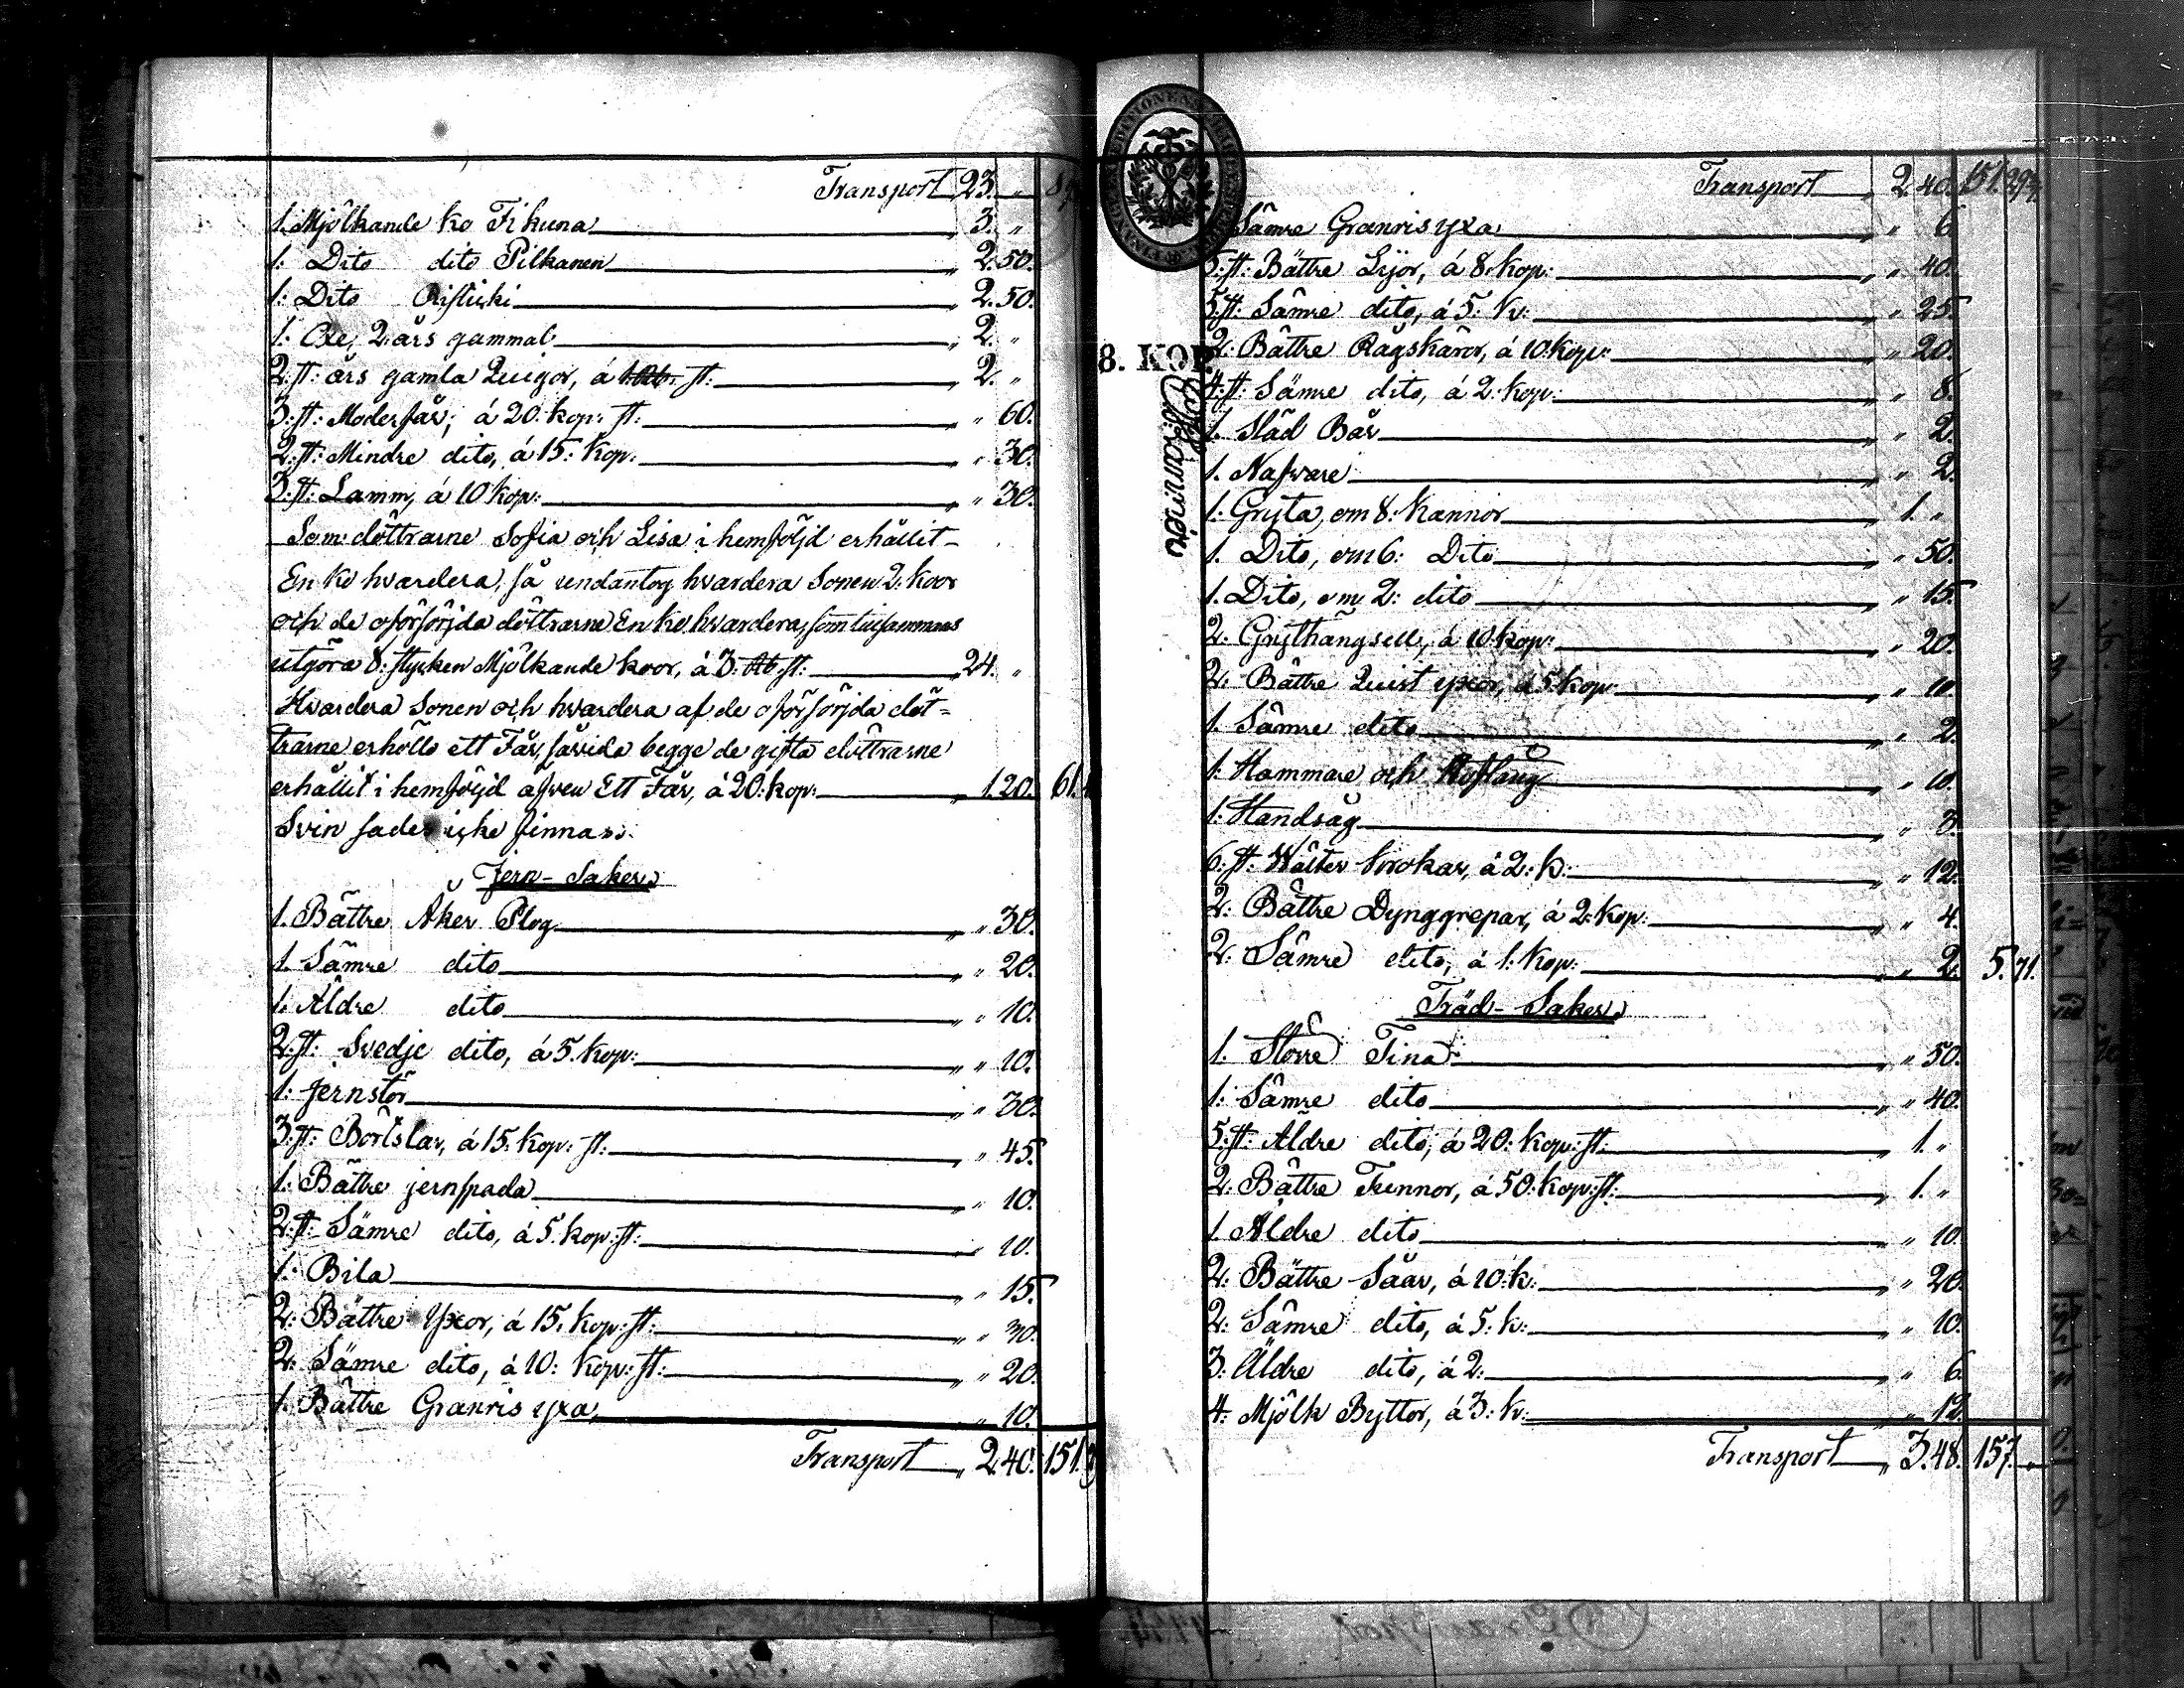 Transport 23. „
1. Mjölkande ko Fikuna „ 3. „
1: Dito dito Pilkanen „ 2. 50.
1: Dito Ristiski „ 2. 50.
1: Oxe, 2. års gammal „ 2. „
2: st: års gamla Quigor, á 1. Rb. st: „ 2. „
3: st: Moderfår, á 20. kop: st: „ „ 60.
2: st: Mindre dito, á 15: kop. „ „ 30.
3: st: Lamm, á 10 kop: „ „ 30.
Som döttrarne Sofia och Lisa i hemföljd erhållit
En ko hvardera, så undantog hvardera Sonen 2. koor
och de oförsörjda döttrarne En ko hvardera, som tillsammans
utgöra 8: stycken Mjölkande koor, á 3. Rb. st: „ 24. „
Hvardera Sonen och hvardera af de oförsörjda döt-
trarne erhöllo ett Får, såvida begge de gifta döttrarne
erhållit i hemföljd äfven Ett Får, á 20. kop: „ 1. 20. 61.
Svin sades icke finnas.
Jern-Saker
1. Bättre Åker Plog „ „ 30.
1. Sämre dito „ „ 20.
1. Äldre dito „ „ 10.
2: st: Svedje dito, á 5. kop: „ „ 10.
1: Jernstör „ „ 30.
3: st: Börtslar, á 15. kop: st: „ „ 45.
1: Bättre jernspada „ „ 10.
2: st: Sämre dito, á 5. kop: st: „ „ 10.
1: Bila „ „ 15.
2: Bättre Yxor, á 15. kop: st: „ „ 30.
2: Sämre dito, á 10: kop: st: „ „ 20.
1. Bättre Granris yxa „ „ 10.
Transport „ 2. 40. 151.
8. KOP.
Transport „ 2 40. 151. 29
1. Sämre Granris yxa „ „ 6.
5: st: Bättre Lijor, á 8. kop: „ „ 40.
5: st: Sämre dito, á 5: k: „ „ 25.
2: Bättre Rågskäror, á 10. kop: „ „ 20.
4: st: Sämre dito, á 2: kop: „ „ 8.
1. Städ Bår „ „ 2.
1. Nafvare „ „ 2.
1: Gryta, om 8: Kannor „ 1. „
1. Dito, om 6: Dito „ „ 50.
1. Dito, om 2: dito „ „ 15.
2. Grythängsell, á 10 kop: „ „ 20.
2. Bättre Quist yxor, á 5. kop: „ „ 10.
1. Sämre dito „ „ 2.
1: Hammare och Hoftång „ „ 10.
1: Handsåg „ „ 8.
6: st: Wäiter krokar, á 2: k: „ „ 12.
2: Bättre Dynggrepar, á 2: kop: „ „ 4.
2: Sämre dito, á 1: kop: „ „ 2. 5. 71.
Träd-Saker
1. Större Tina „ 50.
1: Sämre dito „ „ 40.
5: st: Äldre dito, á 20: kop: st: „ 1. „
2: Bättre Tunnor, á 50: kop: st: „ 1. „
1. Äldre dito „ „ 10.
2: Bättre Såar, á 10: k: „ „ 20.
2: Sämre dito, á 5: k: „ „ 10.
3: Äldre dito, á 2: „ „ 6.
4: Mjölk Byttor, á 3: k: „ „ 12.
Transport „ 3. 48. 157. „